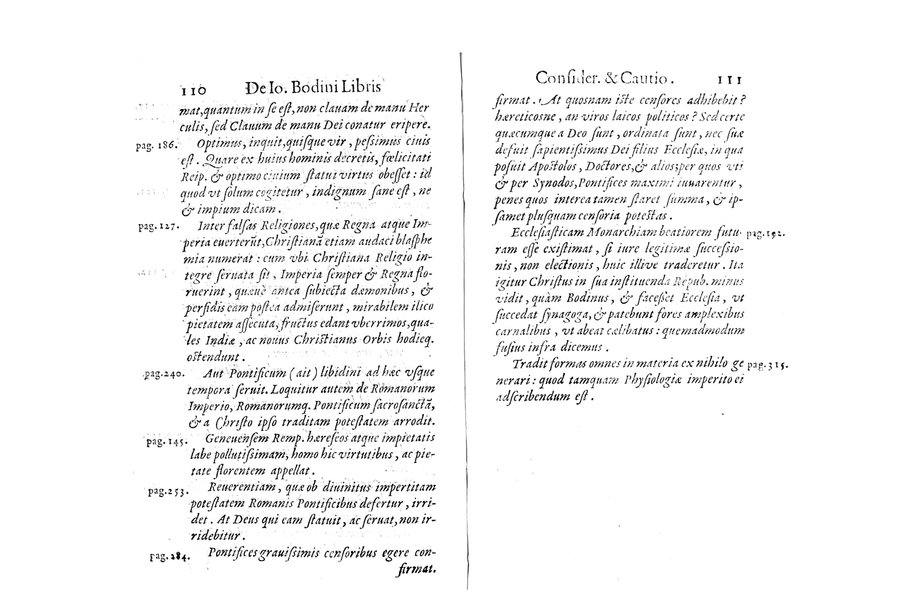 110 De Io. Bodini Libris
mat, quantum in se est, non clauam de manu Her
culis, sed Clauum de manu Dei conatur eripere.
pag. 186. Optimus, inquit, quisque vir, pessimus ciuis
est. Quare ex huius hominis decretis, fœlicitati
Reip. & optimo ciuium statui virtus obesset: id
quod vt solum cogitetur, indignum sane est, ne
& impium dicam.
pag. 127. Inter falsas Religiones, quæ Regna atque Im-
peria euerterūt, Christianā etiam audaci blasphe
mia numerat: cum vbi Christiana Religio in-
tegre seruata sit, Imperia semper & Regna flo-
ruerint, quæuè antea subiecta dæmonibus, &
perfidis eam postea admiserunt, mirabilem ilico
pietatem assecuta, fructus edant vberrimos, qua-
les Indiæ, ac nouus Christianus Orbis hodieq.
ostendunt.
pag. 240. Aut Pontificum (ait) libidini ad hæc vsque
tempora seruit. Loquitur autem de Romanorum
Imperio, Romanorumq. Pontificum sacrosanctā,
& a Christo ipso traditam potestatem arrodit.
pag. 145. Geneuensem Remp. hæreseos atque impietatis
labe pollutissimam, homo hic virtutibus, ac pie-
tate florentem appellat.
pag. 253. Reuerentiam, quæ ob diuinitus impertitam
potestatem Romanis Pontificibus defertur, irri-
det. At Deus qui eam statuit, ac seruat, non ir-
ridebitur.
pag. 284. Pontifices grauissimis censoribus egere con-
firmat.
Consider. & Cautio. 111
firmat. At quosnam iste censores adhibebit?
hæreticosne, an viros laicos politicos? Sed certe
quæcumque a Deo sunt, ordinata sunt, nec suæ
defuit sapientissimus Dei filius Ecclesiæ, in qua
posuit Apostolos, Doctores, & alios; per quos vti
& per Synodos, Pontifices maximi iuuarentur,
penes quos interea tamen staret summa, & ip-
samet plusquam censoria potestas.
Ecclesiasticam Monarchiam beatiorem futu- pag. 192.
ram esse existimat, si iure legitimæ successio-
nis, non electionis, huic illive traderetur. Ita
igitur Christus in sua instituenda Repub. minus
vidit, quàm Bodinus, & facesset Ecclesia, vt
succedat synagoga, & patebunt fores amplexibus
carnalibus, vt abeat cælibatus: quemadmodum
fusius infra dicemus.
Tradit formas omnes in materia ex nihilo ge pag. 315.
nerari: quod tamquam Physiologiæ imperito ei
adscribendum est.